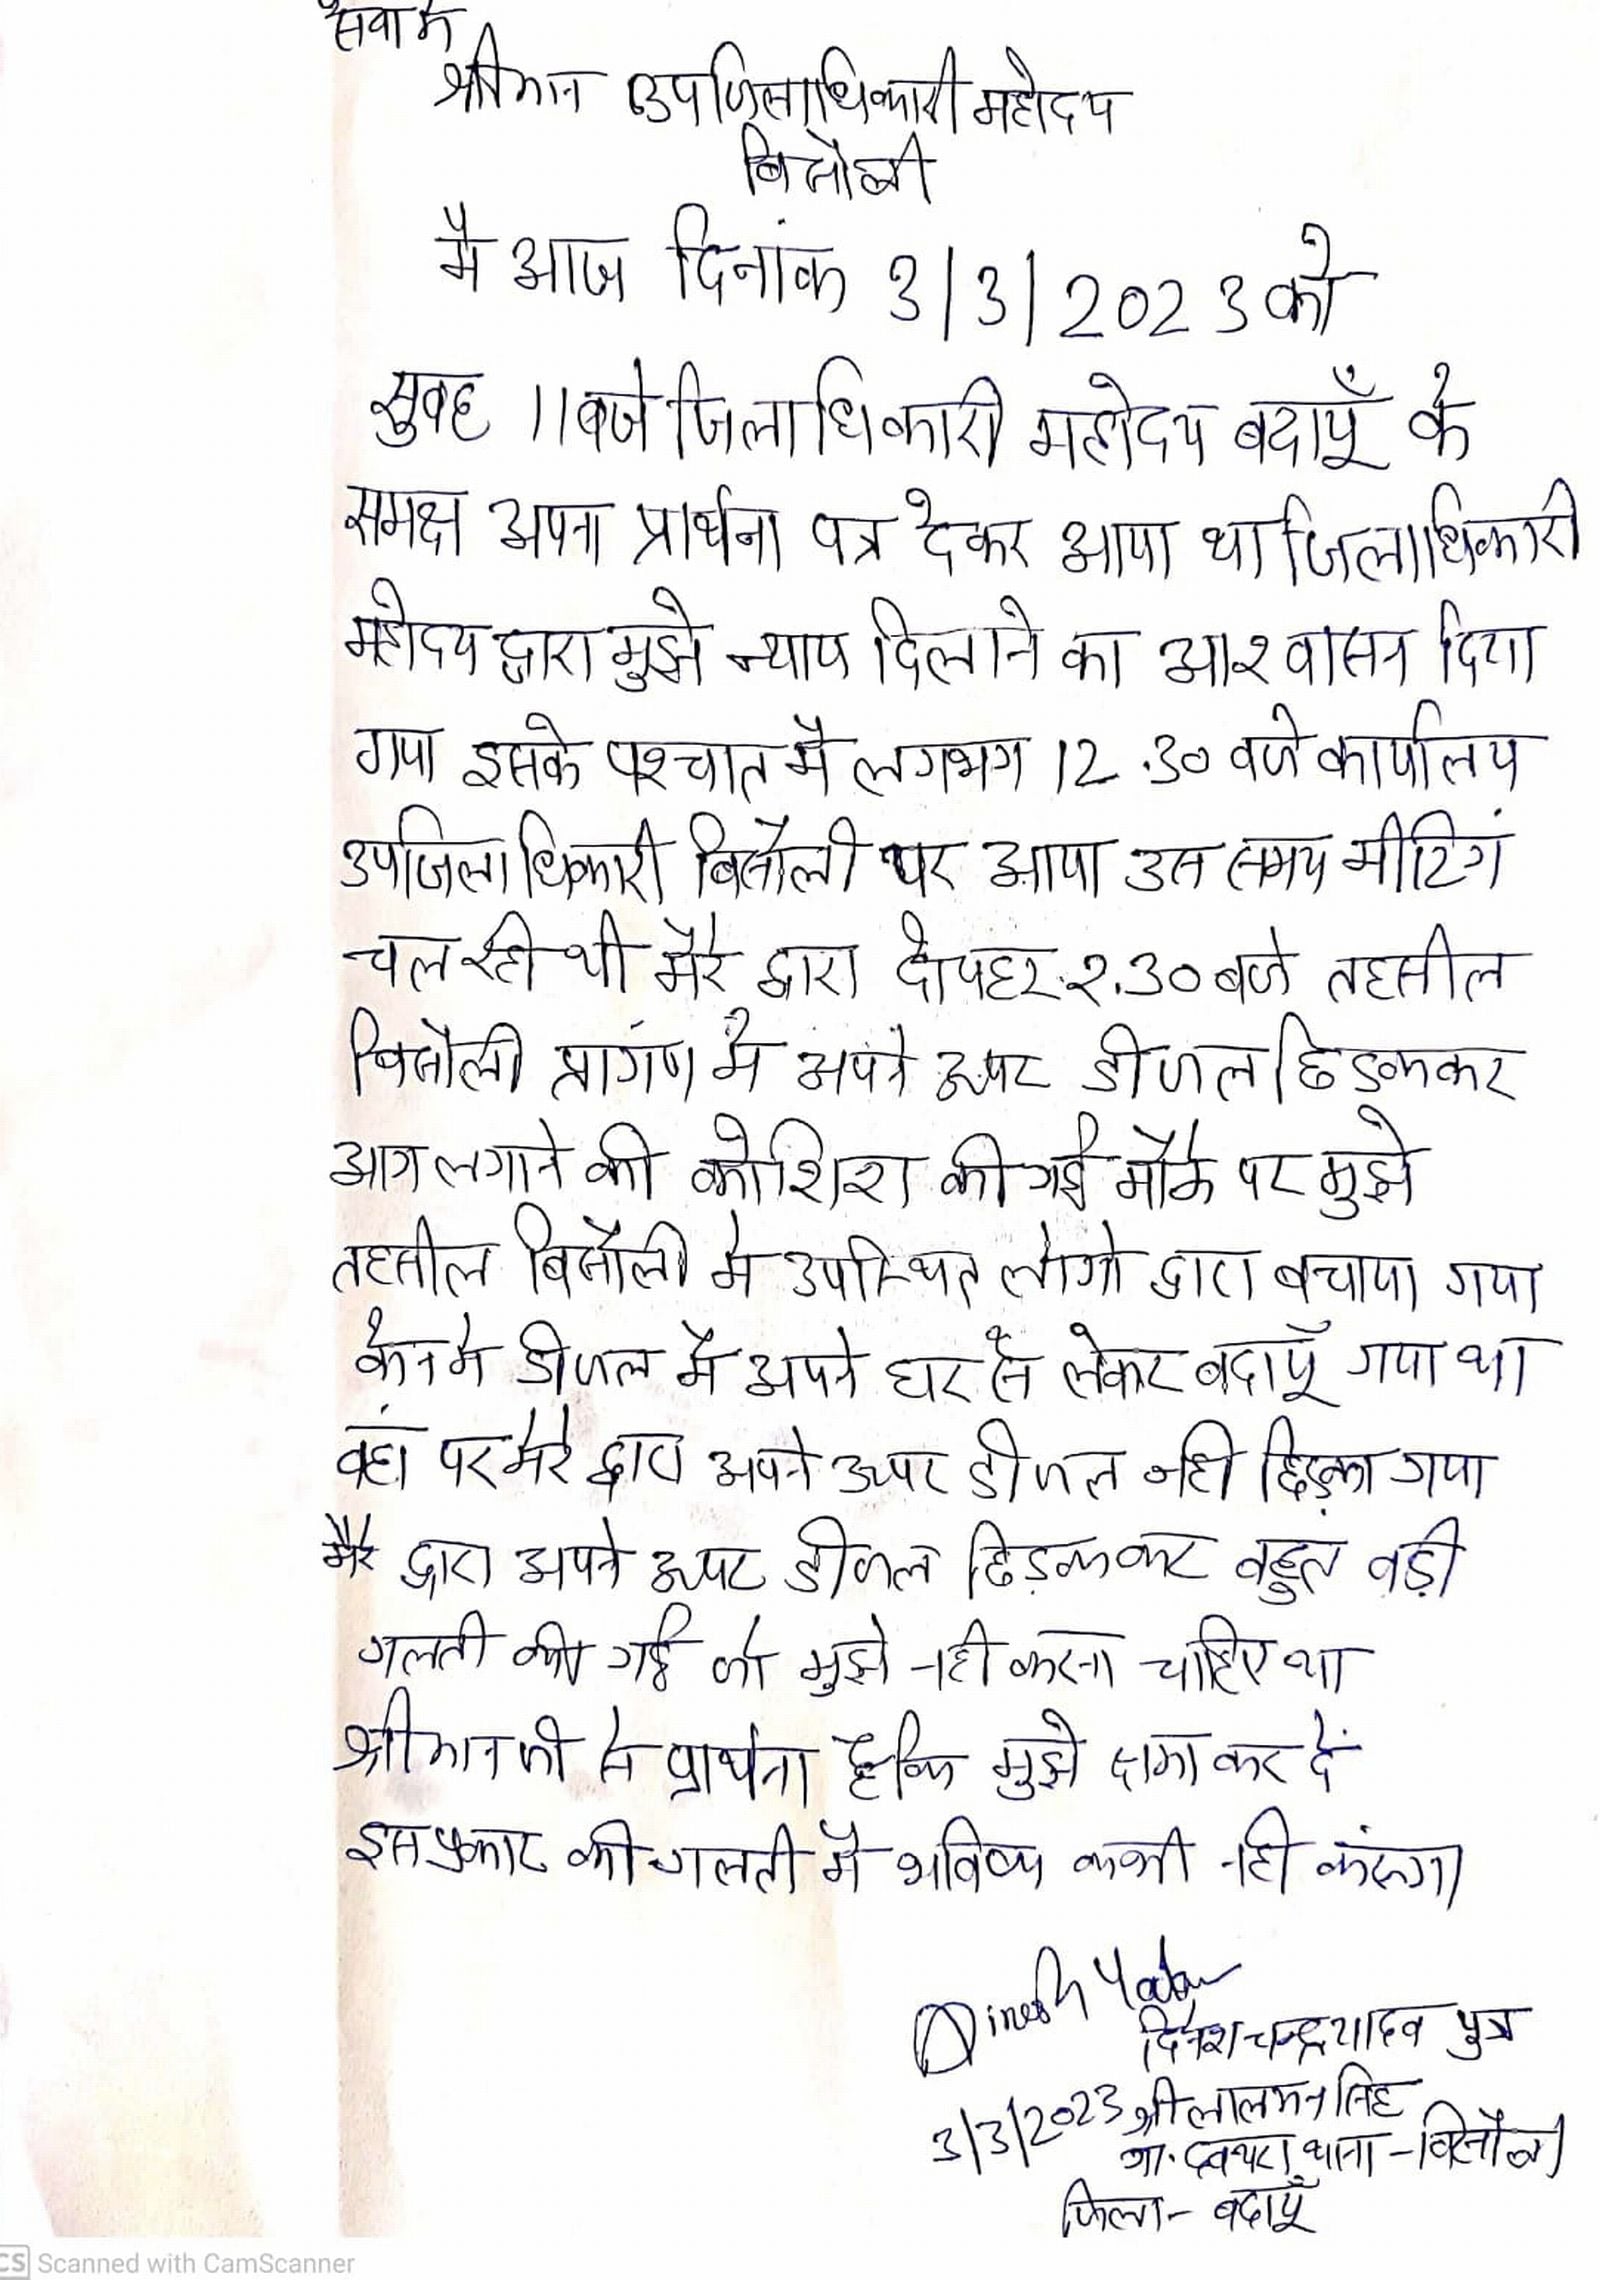 सेवा मे
श्रीमान उपजिलाधिकारी महोदय
बिसौली
मै आज दिनांक 3/3/2023 को
सुवह 11 बजे जिलाधिकारी महोदय बदायूँ के
समक्ष अपना प्रार्थना पत्र देकर आया था जिलाधिकारी
महोदय द्वारा मुझे न्याय दिलाने का आश्वासन दिया
गया इसके पश्चात मै लगभग 12.30 वजे कार्यालय
उपजिलाधिकारी बिसौली पर आया उस समय मीटिगं
चल रही थी मेरे द्वारा दोपहर 2.30 बजे तहसील
बिसौली प्रागंण मे अपने ऊपर डीजल छिडककर
आग लगाने की कोशिश की गई मौके पर मुझे
तहसील बिसौली मे उपस्थित लोगो द्वारा बचाया गया
केन मे डीजल मै अपने घर से लेकर बदायूँ गया था
वहां पर मेरे द्वारा अपने ऊपर डीजल नही छिड़का गया
मेरे द्वारा अपने ऊपर डीजल छिड़ककर बहुत वड़ी
गलती की गई जो मुझे नही करना चाहिए था
श्रीमान जी से प्रार्थना है कि मुझे क्षमा कर दें
इस प्रकार की गलती मै भविष्य कभी नही करुंगा
Dinesh Yadav
दिनेश चन्द्र यादव पुत्र
3/3/2023 श्री लालमन सिंह
ग्रा. थाना - बिसौली
जिला - बदायूँ
CS Scanned with CamScanner